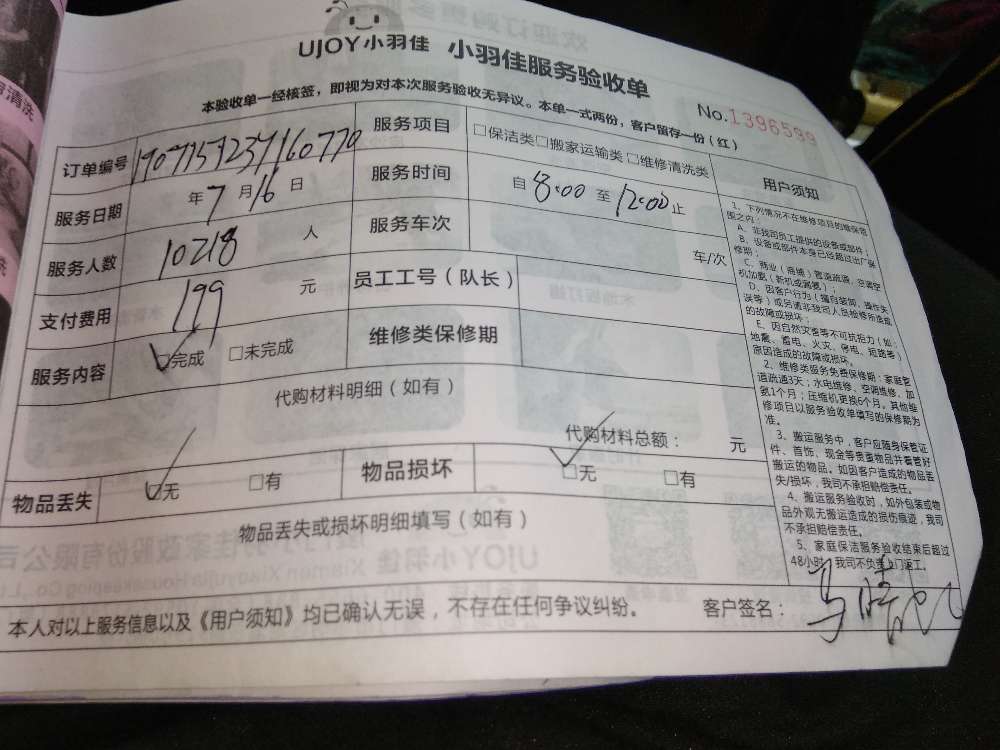 UJOY小羽佳 小羽佳服务验收单
本验收单一经核签，即视为对本次服务验收无异议。本单一式两份，客户留存一份（红）
No.1396599
订单编号 1907159237160770 服务项目 □保洁类□搬家运输类 □维修清洗类
服务日期 年7月16日 服务时间 自8:00至12:00止
服务人数 10218 人 服务车次 车/次
支付费用 199 元 员工工号（队长）
服务内容 □完成 □未完成 维修类保修期
代购材料明细（如有）
代购材料总额： 元
物品丢失 □无 □有 物品损坏 □无 □有
物品丢失或损坏明细填写（如有）
用户须知
1、下列情况不在维修项目的维保范
围之内：
A、非我司员工提供的设备或部件；
B、设备或部件本身已经超过出厂保
修期；
C、商业（商铺）管道疏通、空调空
机加氨（新机或漏氨）；
D、因客户行为（擅自装卸、操作失
误等）或另请非我司人员检修所造成
的故障或损坏；
E、因自然灾害等不可抗拒力（如：
地震、蓄电、火灾、停电、短路等）
原因造成的故障或损坏。
2、维修类服务免费保修期：家庭管
道疏通3天；水电维修、空调维修、加
氨1个月；压缩机更换6个月。其他维
修项目以服务验收单填写的保修期为
准。
3、搬运服务中，客户应随身保管证
件、首饰、现金等贵重物品并看管好
搬运的物品。如因客户造成的物品丢
失/损坏，我司不承担赔偿责任。
4、搬运服务验收时，如外包装或物
品外观无搬运造成的损伤痕迹，我司
不承担赔偿责任。
5、家庭保洁服务验收结束后超过
48小时，我司不负责上门返工。
本人对以上服务信息以及《用户须知》均已确认无误，不存在任何争议纠纷。 客户签名：